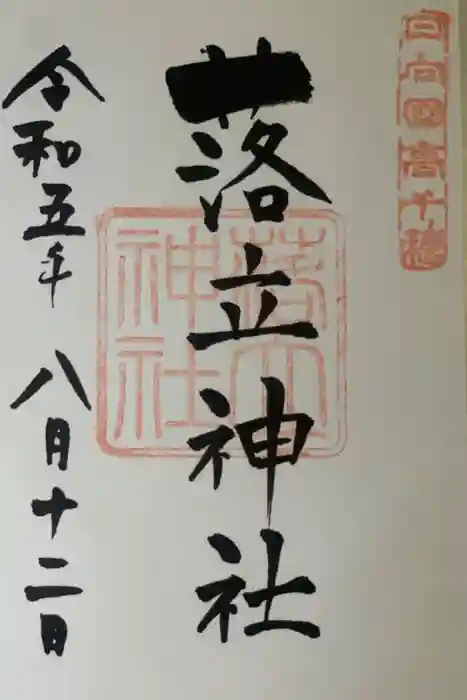 日向国高千穂
落立神社
落立神社
令和五年 八月十二日